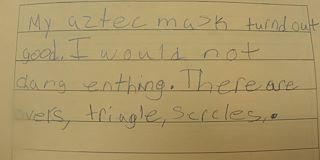 My aztec mask turnd out
good. I would not
dang enthing. There are
overs, triagle, scrcles,.